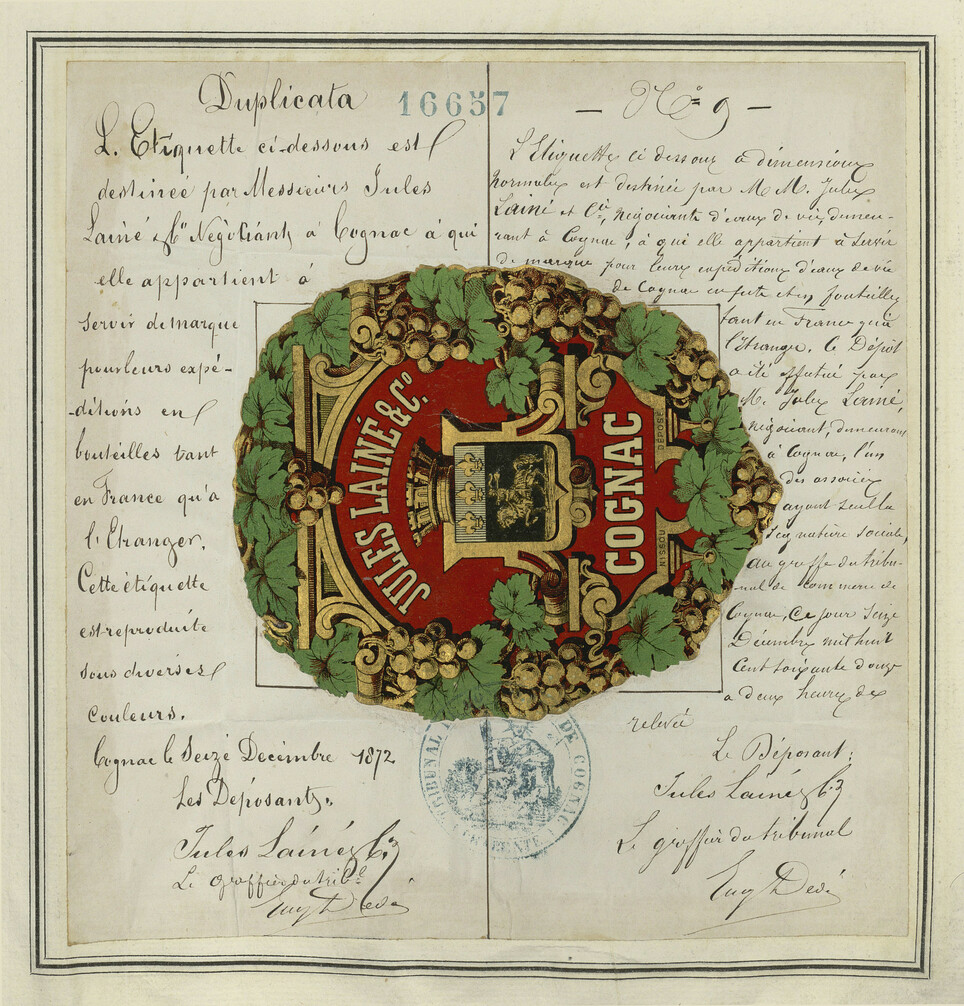 Duplicata
16657
L. Etiquette ci-dessous est
destineé par Messieurs Jules
Lainé & Cie Négociants à Cognac à qui
elle appartient à
servir de marque
pour leurs expé-
ditions en
bouteilles tant
en France qu'à
l'Etranger.
Cette étiquette
est reproduite
sous diverses
couleurs.
Cognac le Seize Décembre 1872
Les Déposants.
Jules Lainé & Cie
Le greffier du tribl
Eug Dedé
— No 9 —
L'Etiquette ci dessous à dimensions
normales est destinée par M M. Jules
Lainé et Cie, négociants d'eaux de vie, demeu-
rant à Cognac, à qui elle appartient à servir
de marque pour leurs expéditions d'eaux de vie
de Cognac en futs et en bouteilles
tant en France qu'à
l'étranger. Ce Dépôt
a été effectué par
M. Jules Lainé,
négociant, demeurant
à Cognac, l'un
des associés
ayant seul la
signature sociale,
au greffe du tribu-
nal de commerce de
Cognac, Ce jour Seize
Décembre mil huit
Cent soixante douze
à deux heures de
relevée
Le Déposant:
Jules Lainé & Cie
Le greffier du tribunal
Eug Dedé
JULES LAINÉ & Co.
COGNAC
NISSOU
DÉPOSÉ
TRIBUNAL DE COGNAC
CHARENTE